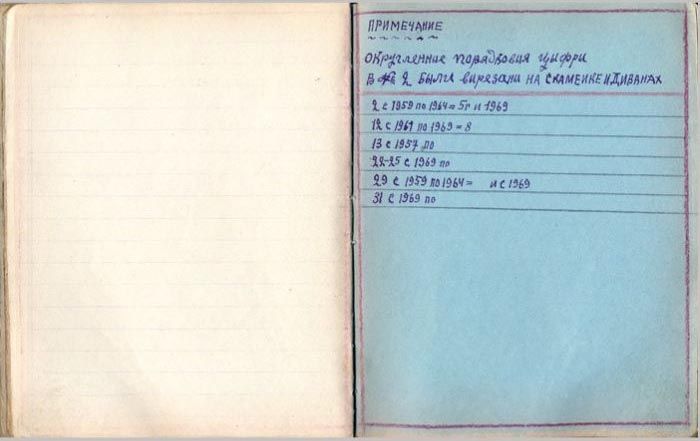 ПРИМЕЧАНИЕ
ОКругленние порядковия цифри
В № 2 Были вирезани НА СКАМЕЙКЕ И ДИВАНАХ
2 с 1959 по 1964 = 5г и 1969
12 с 1961 по 1969 = 8
13 с 1957 по
22-25 с 1969 по
29 с 1959 по 1964 = и с 1969
31 с 1969 по